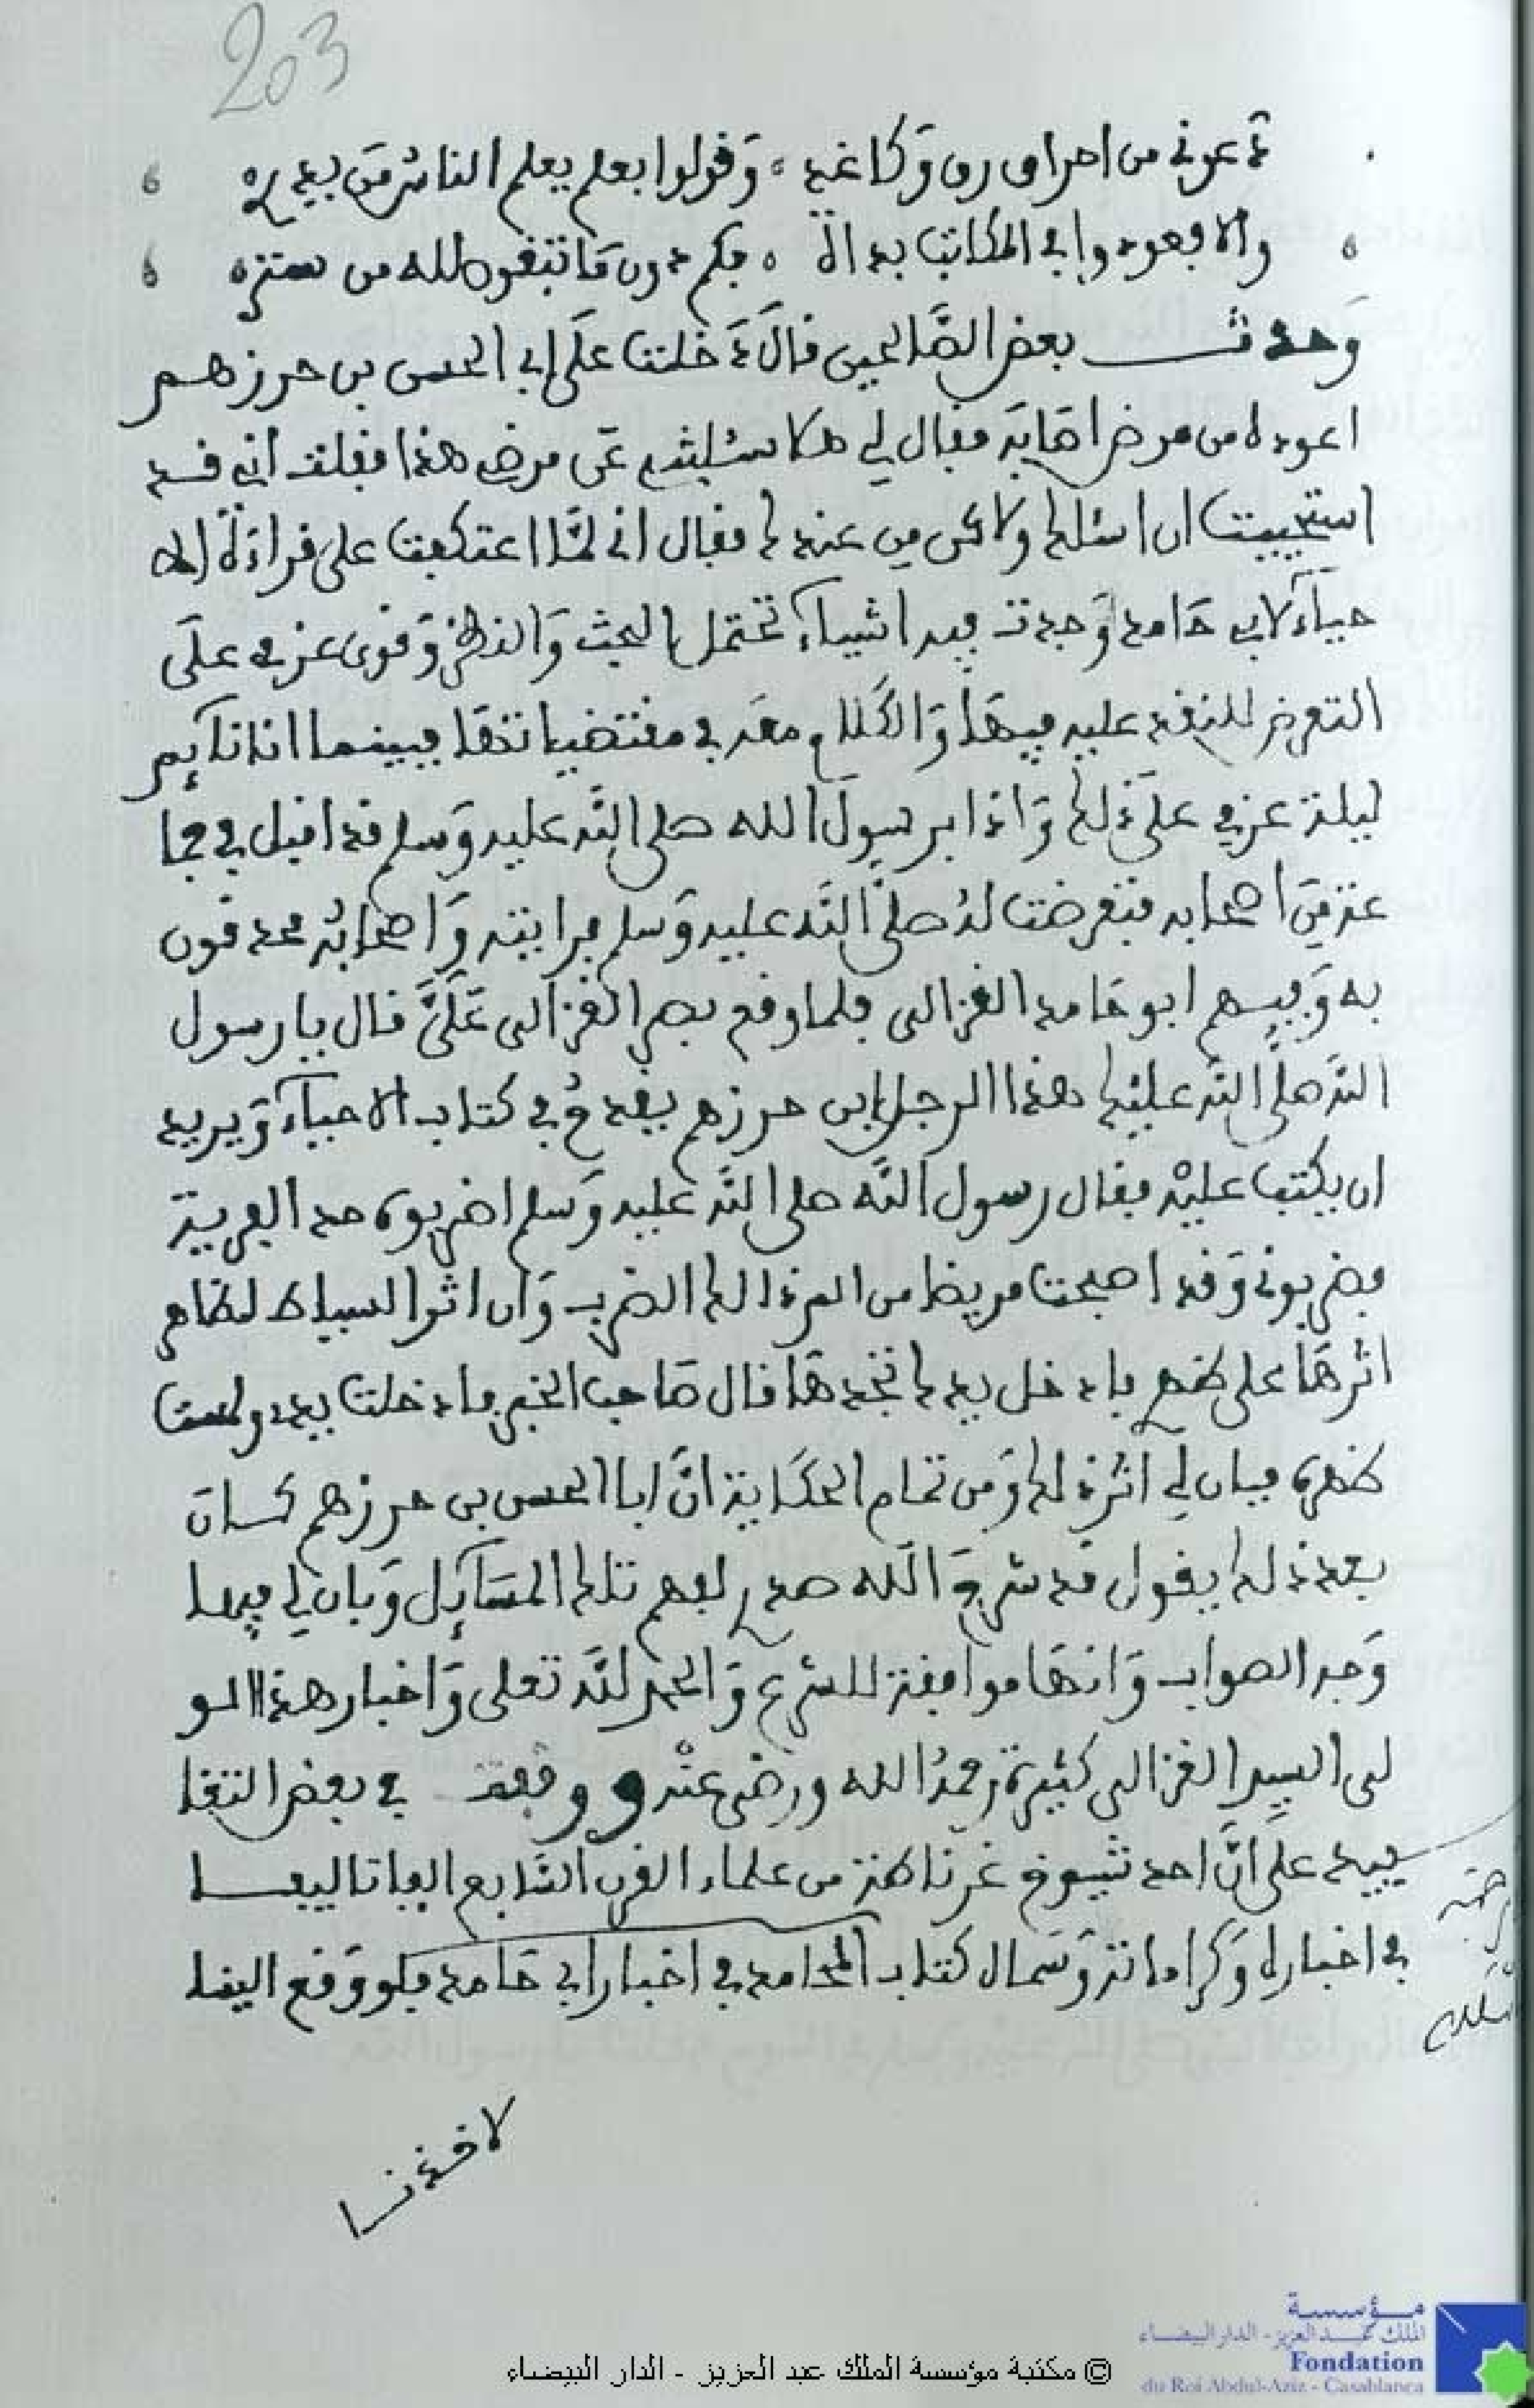 203
دعوني من احراق رق وكاغد ، وقولوا بعلم يعلم الناس من يدره
والا فعودوا في المكاتب بدأة ، فكم دون ما تبغون لله من ستره
وحدث بعض الصالحين قال دخلت على ابي الحسن بن حرزهم
اعوده من مرض اصابه فقال لي هلا سئلتني عن مرضي هذا فقلت اني قد
استحييت ان اسئلك ولاكن من عندك فقال اني لما اعتكفت على قراءة الا
حياء لابي حامد وجدت فيه اشياء تحتمل البحث والنظر وقوى عزمي على
التعرض للنقد عليه فيها والكلام معه في مقتضياتها فبينما انا نايم
ليلة عزمي على ذلك واذا برسول الله صلى الله عليه وسلم قد اقبل في جما
عة من اصحابه فتعرضت له صلى الله عليه وسلم فرايته واصحابه محدقون
به وفيهم ابو حامد الغزالى فلما وقع بصر الغزالى علي قال يا رسول
الله صلى الله عليك هذا الرجل ابن حرزهم يقدح في كتاب الاحياء ويريد
ان يكتب عليه فقال رسول الله صلى الله عليه وسلم اضربوه حد الفرية
فضربوني وقد اصبحت مريضا من الم ذالك الضرب وان اثر السياط لظاهر
اثرها على ظهري فادخل يدك تجدها قال صاحب الخبر فادخلت يدي ولمست
ظهره فبان لي اثر ذلك ومن تمام الحكاية ان ابا الحسن بن حرزهم كان
بعد ذلك يقول قد شرح الله صدري لفهم تلك المسايل وبان لي فيها
وجه الصواب وانها موافقة للشرع والحمد لله تعلى واخبار هذا الو
لى السيد الغزالى كثيرة رحمه الله ورضي عنه ووقفت في بعض التقا
ييد على ان احد شيوخ غرناطة من علماء القرن السابع الف تاليفا
في اخباره وكراماته وسماه كتاب المحامد في اخبار ابي حامد فلو وقع الينا
لاخذنا
مؤسسة
الملك عبد العزيز - الدار البيضاء
Fondation
du Roi Abdul-Aziz - Casablanca
© مكتبة مؤسسة الملك عبد العزيز - الدار البيضاء